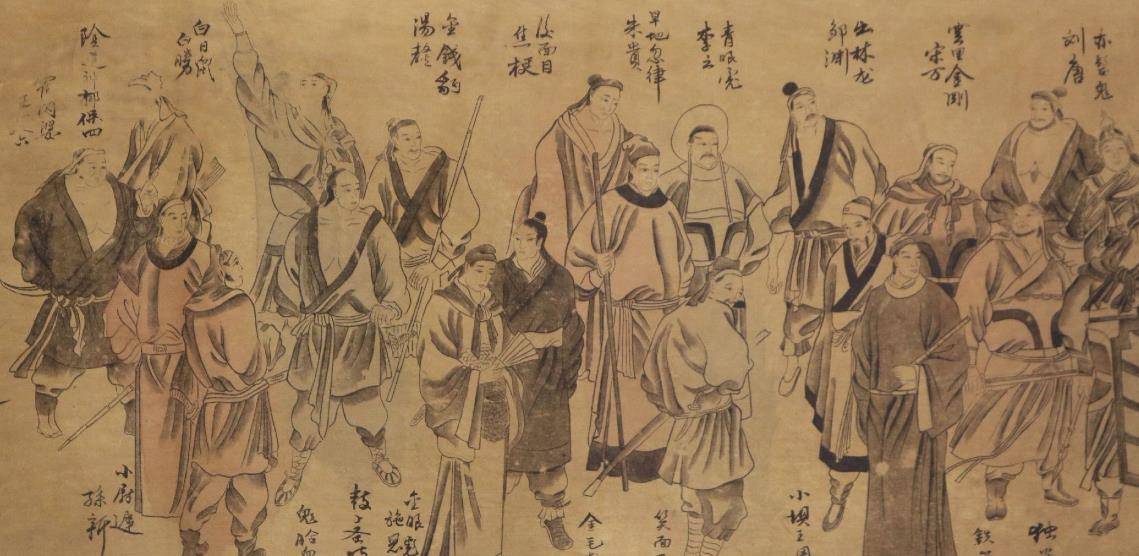 赤髮鬼
刘唐
雲里金剛
宋万
出林龙
邹渊
青眼虎
李云
旱地忽律
朱貴
没面目
焦梗
金錢豹
湯隆
白日鼠
白勝
險道神郁保四
王定六
独
鉄
小埧王周
笑面
金毛
金眼彪
施恩
鼓上蚤时
鬼臉
小尉遲
孫新